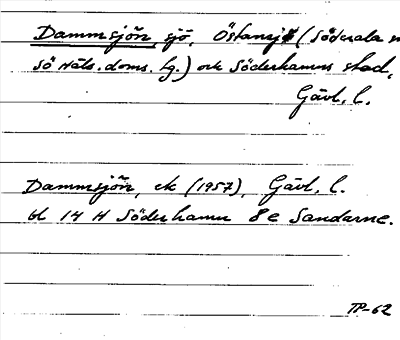 Dammsjön, sjö, Östansjö (Söderala
sö Häls. doms. tg.) och Söderhamns stad,
Gävl. l.
Dammsjön, ek (1957), Gävl. l.
bl 14 H Söderhamn 8e Sandarne.
TP-62